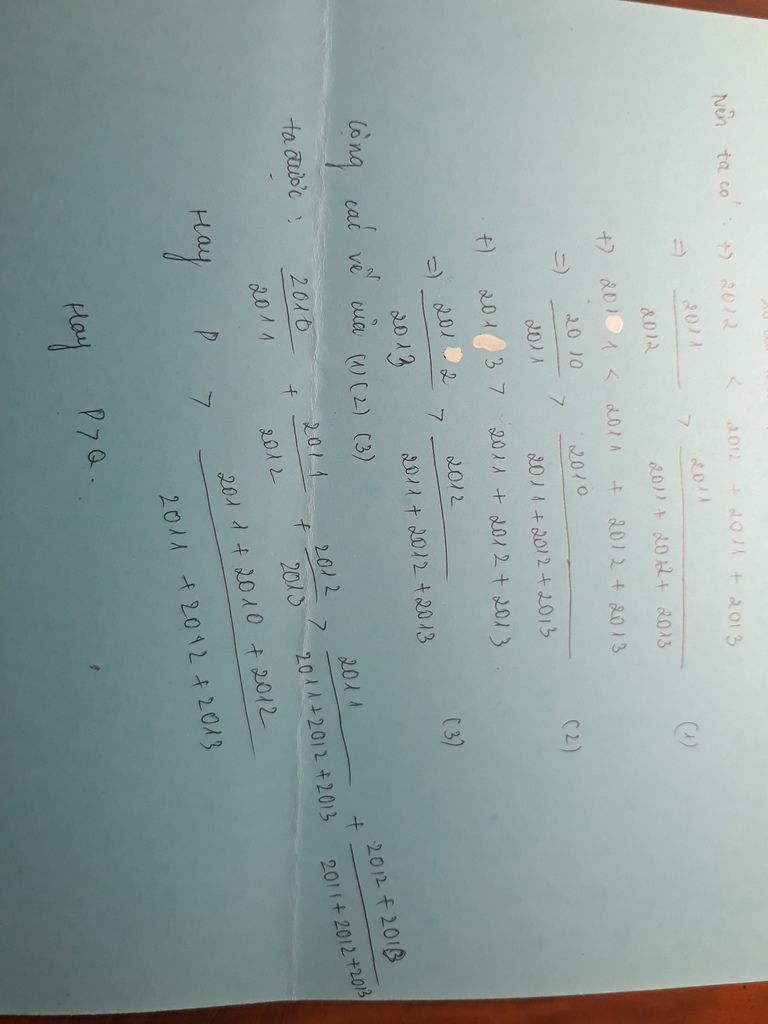 Nên ta có : +) 2012 < 2012 + 2011 + 2013
=) 2011/2012 > 2011/2011 + 2012 + 2013 (1)
+) 2011 < 2011 + 2012 + 2013
=) 2010/2011 > 2010/2011 + 2012 + 2013 (2)
+) 2013 > 2011 + 2012 + 2013
=) 2012/2013 > 2012/2011 + 2012 + 2013 (3)
Cộng các vế của (1) (2) (3)
ta được : 2010/2011 + 2011/2012 + 2012/2013 > 2011/2011 + 2012 + 2013 + 2012 + 2010/2011 + 2012 + 2013
Hay P > 2011 + 2010 + 2012/2011 + 2012 + 2013
Hay P > Q.